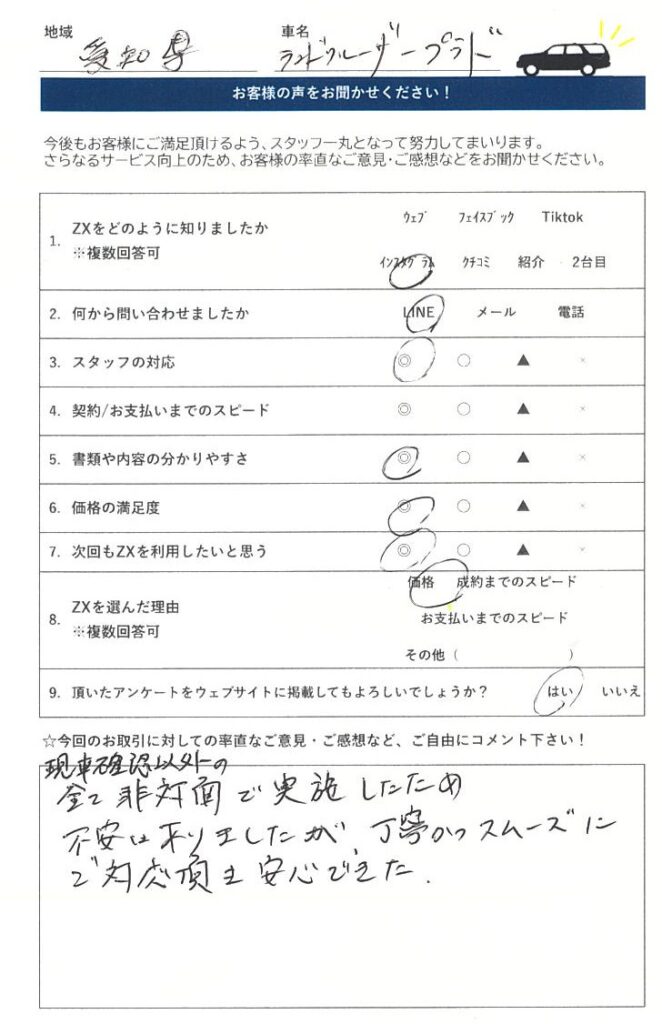 地域
愛知県
車名
ランドクルーザープラド
お客様の声をお聞かせください！
今後もお客様にご満足頂けるよう、スタッフ一丸となって努力してまいります。
さらなるサービス向上のため、お客様の率直なご意見・ご感想などをお聞かせください。
1. ZXをどのように知りましたか
※複数回答可
ウェブ フェイスブック Tiktok
インスタグラム クチコミ 紹介 ・ 2台目
2. 何から問い合わせましたか LINE メール 電話
3. スタッフの対応 ◎ ○ ▲ ×
4. 契約/お支払いまでのスピード ◎ ○ ▲ ×
5. 書類や内容の分かりやすさ ◎ ○ ▲ ×
6. 価格の満足度 ◎ ○ ▲ ×
7. 次回もZXを利用したいと思う ◎ ○ ▲ ×
8. ZXを選んだ理由
※複数回答可
価格 成約までのスピード
お支払いまでのスピード
その他（ ）
9. 頂いたアンケートをウェブサイトに掲載してもよろしいでしょうか？ はい いいえ
☆今回のお取引に対しての率直なご意見・ご感想など、ご自由にコメント下さい！
現車確認以外の
全て非対面で実施したため
不安は有りましたが、丁寧かつスムーズに
ご対応頂き安心できた.